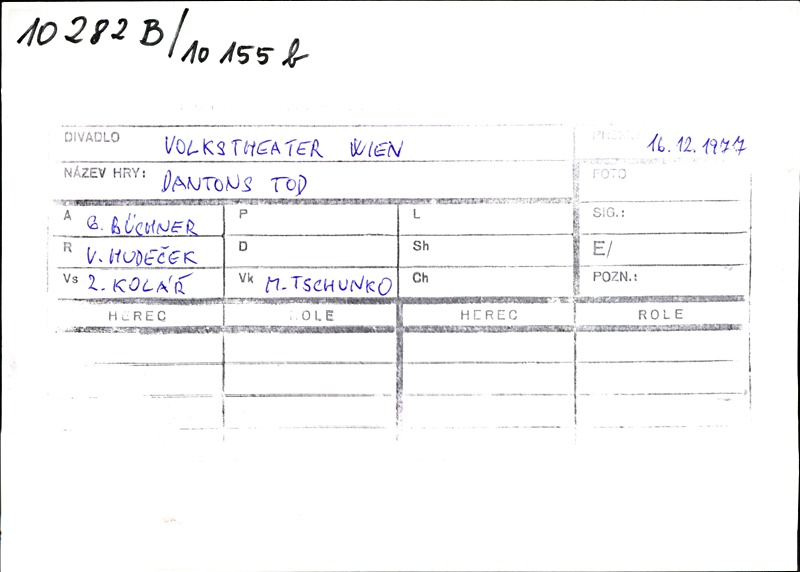 10 282 B/10 155 b
DIVADLO VOLKSTHEATER WIEN 16.12.1977
NÁZEV HRY: DANTONS TOD FOTO
A G. BÜCHNER P L SIG.:
R V. HUDEČEK D Sh E/
Vs Z. KOLÁŘ Vk M. TSCHUNKO Ch POZN.:
HEREC ROLE HEREC ROLE